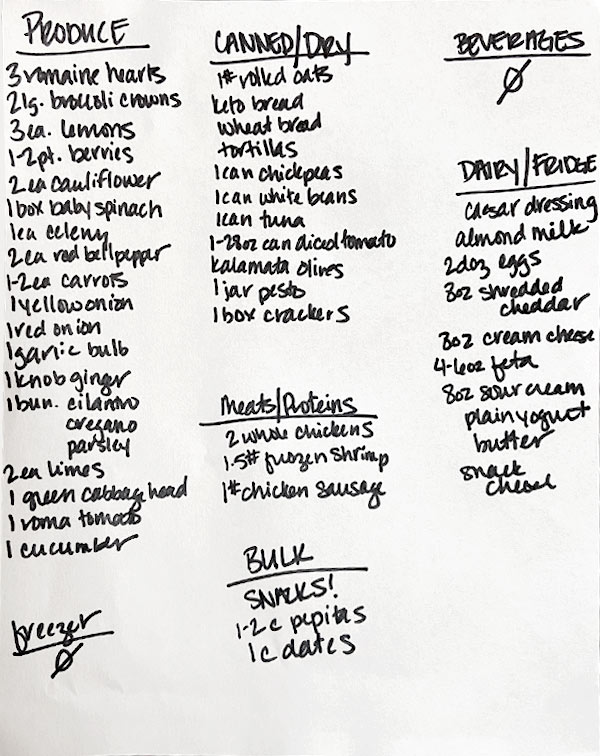 PRODUCE
3 romaine hearts
2 lg. broccoli crowns
3 ea. lemons
1-2 pt. berries
2 ea cauliflower
1 box baby spinach
1 ea celery
2 ea red bell pepper
1-2 ea carrots
1 yellow onion
1 red onion
1 garlic bulb
1 knob ginger
1 bun. cilantro
oregano
parsley
2 ea limes
1 green cabbage head
1 roma tomato
1 cucumber
freezer
Ø
CANNED/DRY
1# rolled oats
keto bread
wheat bread
tortillas
1 can chickpeas
1 can white beans
1 can tuna
1-28oz can diced tomato
kalamata olives
1 jar pesto
1 box crackers
Meats/Proteins
2 whole chickens
1.5# frozen shrimp
1# chicken sausage
BULK
SNACKS!
1-2 c pepitas
1 c dates
BEVERAGES
Ø
DAIRY/FRIDGE
caesar dressing
almond milk
2 doz eggs
8oz shredded
cheddar
8oz cream cheese
4-6oz feta
8oz sour cream
plain yogurt
butter
snack
cheese